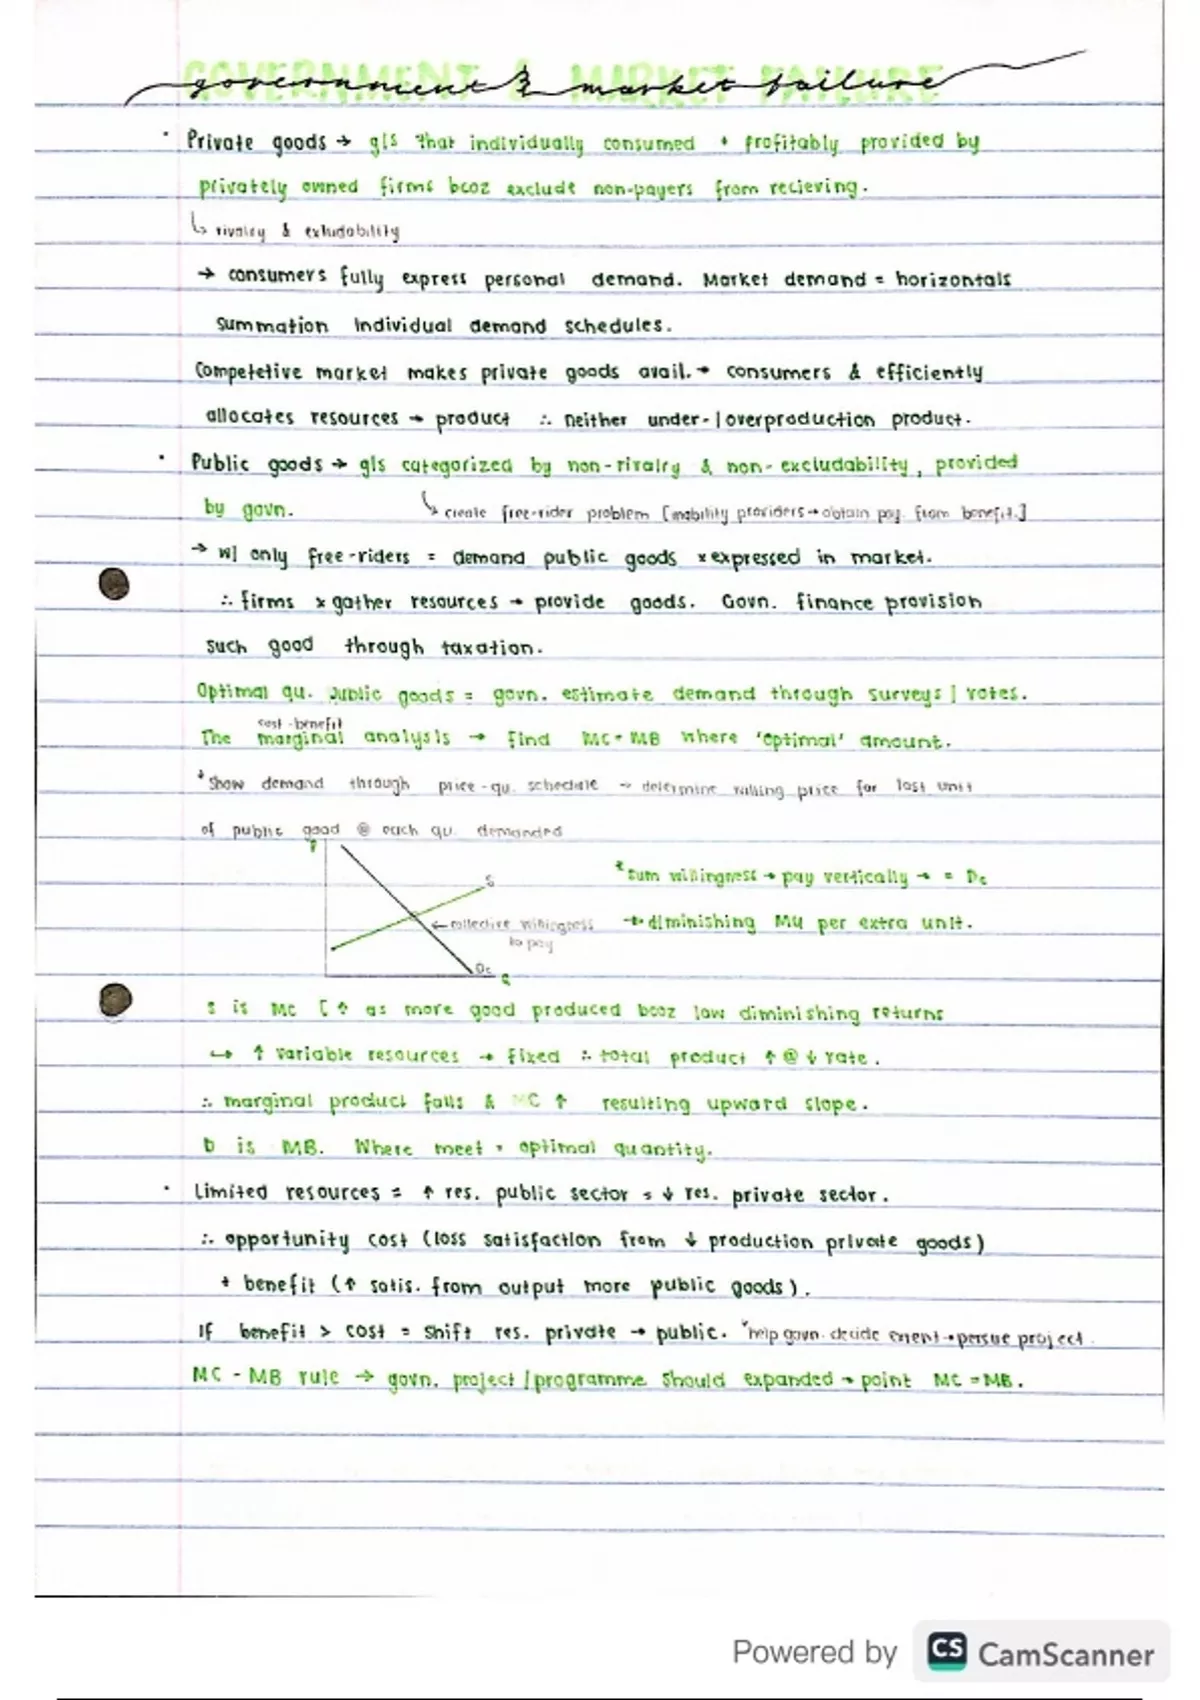 GOVERNMENT & MARKET FAILURE
government & market failure
• Private goods → g/s that individually consumed + profitably provided by
privately owned firms bcoz exclude non-payers from recieving.
↳ rivalry & exludability
→ consumers fully express personal demand. Market demand = horizontals
summation individual demand schedules.
Competetive market makes private goods avail. → consumers & efficiently
allocates resources → product ∴ neither under-/overproduction product.
• Public goods → g/s categorized by non-rivalry & non-excludability, provided
by govn. ↳ create free-rider problem [inability providers → obtain pay. from benefit.]
→ w/ only free-riders = demand public goods x expressed in market.
∴ firms x gather resources → provide goods. Govn. finance provision
such good through taxation.
Optimal qu. public goods = govn. estimate demand through surveys / votes.
cost-benefit
The marginal analysis → find MC = MB where 'optimal' amount.
* Show demand through price-qu. schedule → determine willing price for last unit
of public good @ each qu. demanded
P
S
* sum willingness → pay vertically → = Dc
← collective willingness
to pay
→ diminishing MU per extra unit.
Dc
Q
S is MC [↑ as more good produced bcoz law diminishing returns
↪ ↑ variable resources → fixed ∴ total product ↑ @ ↓ rate.
∴ marginal product falls & MC ↑ resulting upward slope.
D is MB. Where meet = optimal quantity.
• Limited resources = ↑ res. public sector = ↓ res. private sector.
∴ opportunity cost (loss satisfaction from ↓ production private goods)
+ benefit (↑ satis. from output more public goods).
If benefit > cost = shift res. private → public. *help govn. decide → persue project.
MC - MB rule → govn. project / programme should expanded → point MC = MB.
Powered by CS CamScanner